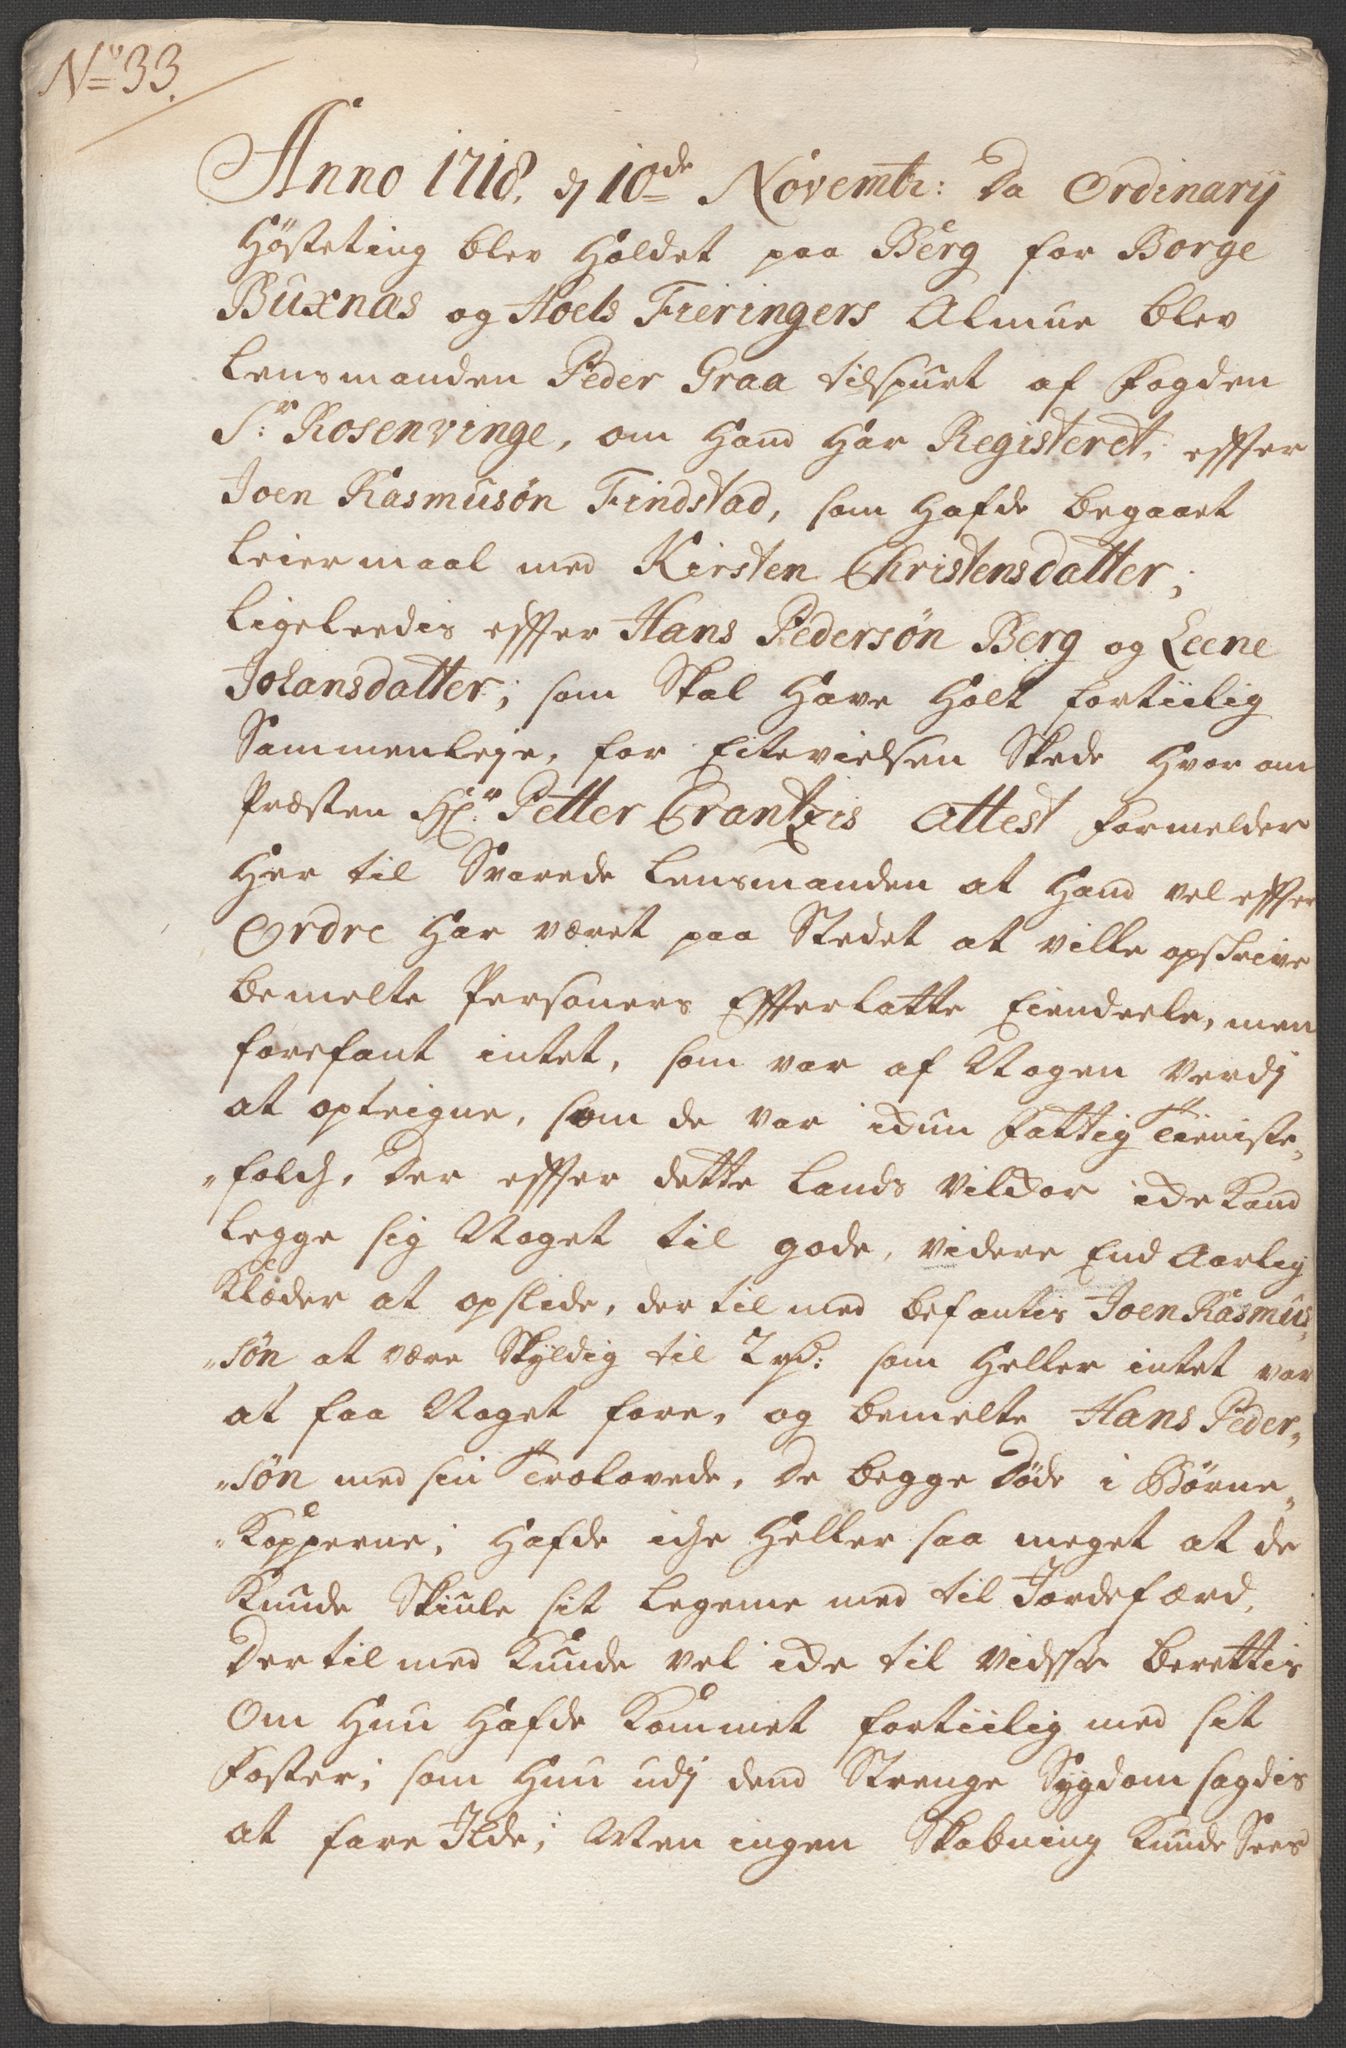 No 33.
Anno 1718. d 10de Novembr: Da Ordinarij
Høsteting blev holdet paa Berg for Borge
Buxnas og Hoels Fieringers Almue blev
Lensmanden Peder Graa tilspurt af Fogden
Sr: Rosenvinge, om hand har Registeret, effter
Joen Rasmusøn Findstad, som hafde begaaet
Leiermaal med Kirsten Christensdatter;
ligeleedis effter Hans Pedersøn Berg og Leene
Johansdatter; som Skal have holt fortiilig
Sammenleje, for Ectevielsen Skede hvor om
Præsten Hr: Petter Crantzis Attest formelder
Her til Svarede Lensmanden at hand vel effter
Ordre har været paa Stedet at ville opskrive
bemelte Personers Effterlatte Eiendeele, men
forefant intet, som var af Nogen Verdj
at opteigne, som de var ickun Fattig Tieniste„
„folch, der effter dette Lands Vilckor icke Kand
legge sig Noget til gode, videre End Aarlig
Klæder at opslide, der til med befantis Joen Rasmus„
„søn at være Skyldig til 2 rd: som heller intet var
at faa Noget fore, og bemelte Hans Peder„
„søn med sin Trolovede, de begge Døde i Børne„
„Kopperne; hafde iche heller saa meget at de
Kunde Skiule sit Legeme med til Jordefærd,
Dertil med Kunde vel icke til Vidsse berettis
Om hun hafde Kommet fortiilig med sit
Foster; som hun udj dend Strenge Sygdom sagdis
at fare Ilde; Men ingen Skabning Kunde Sees